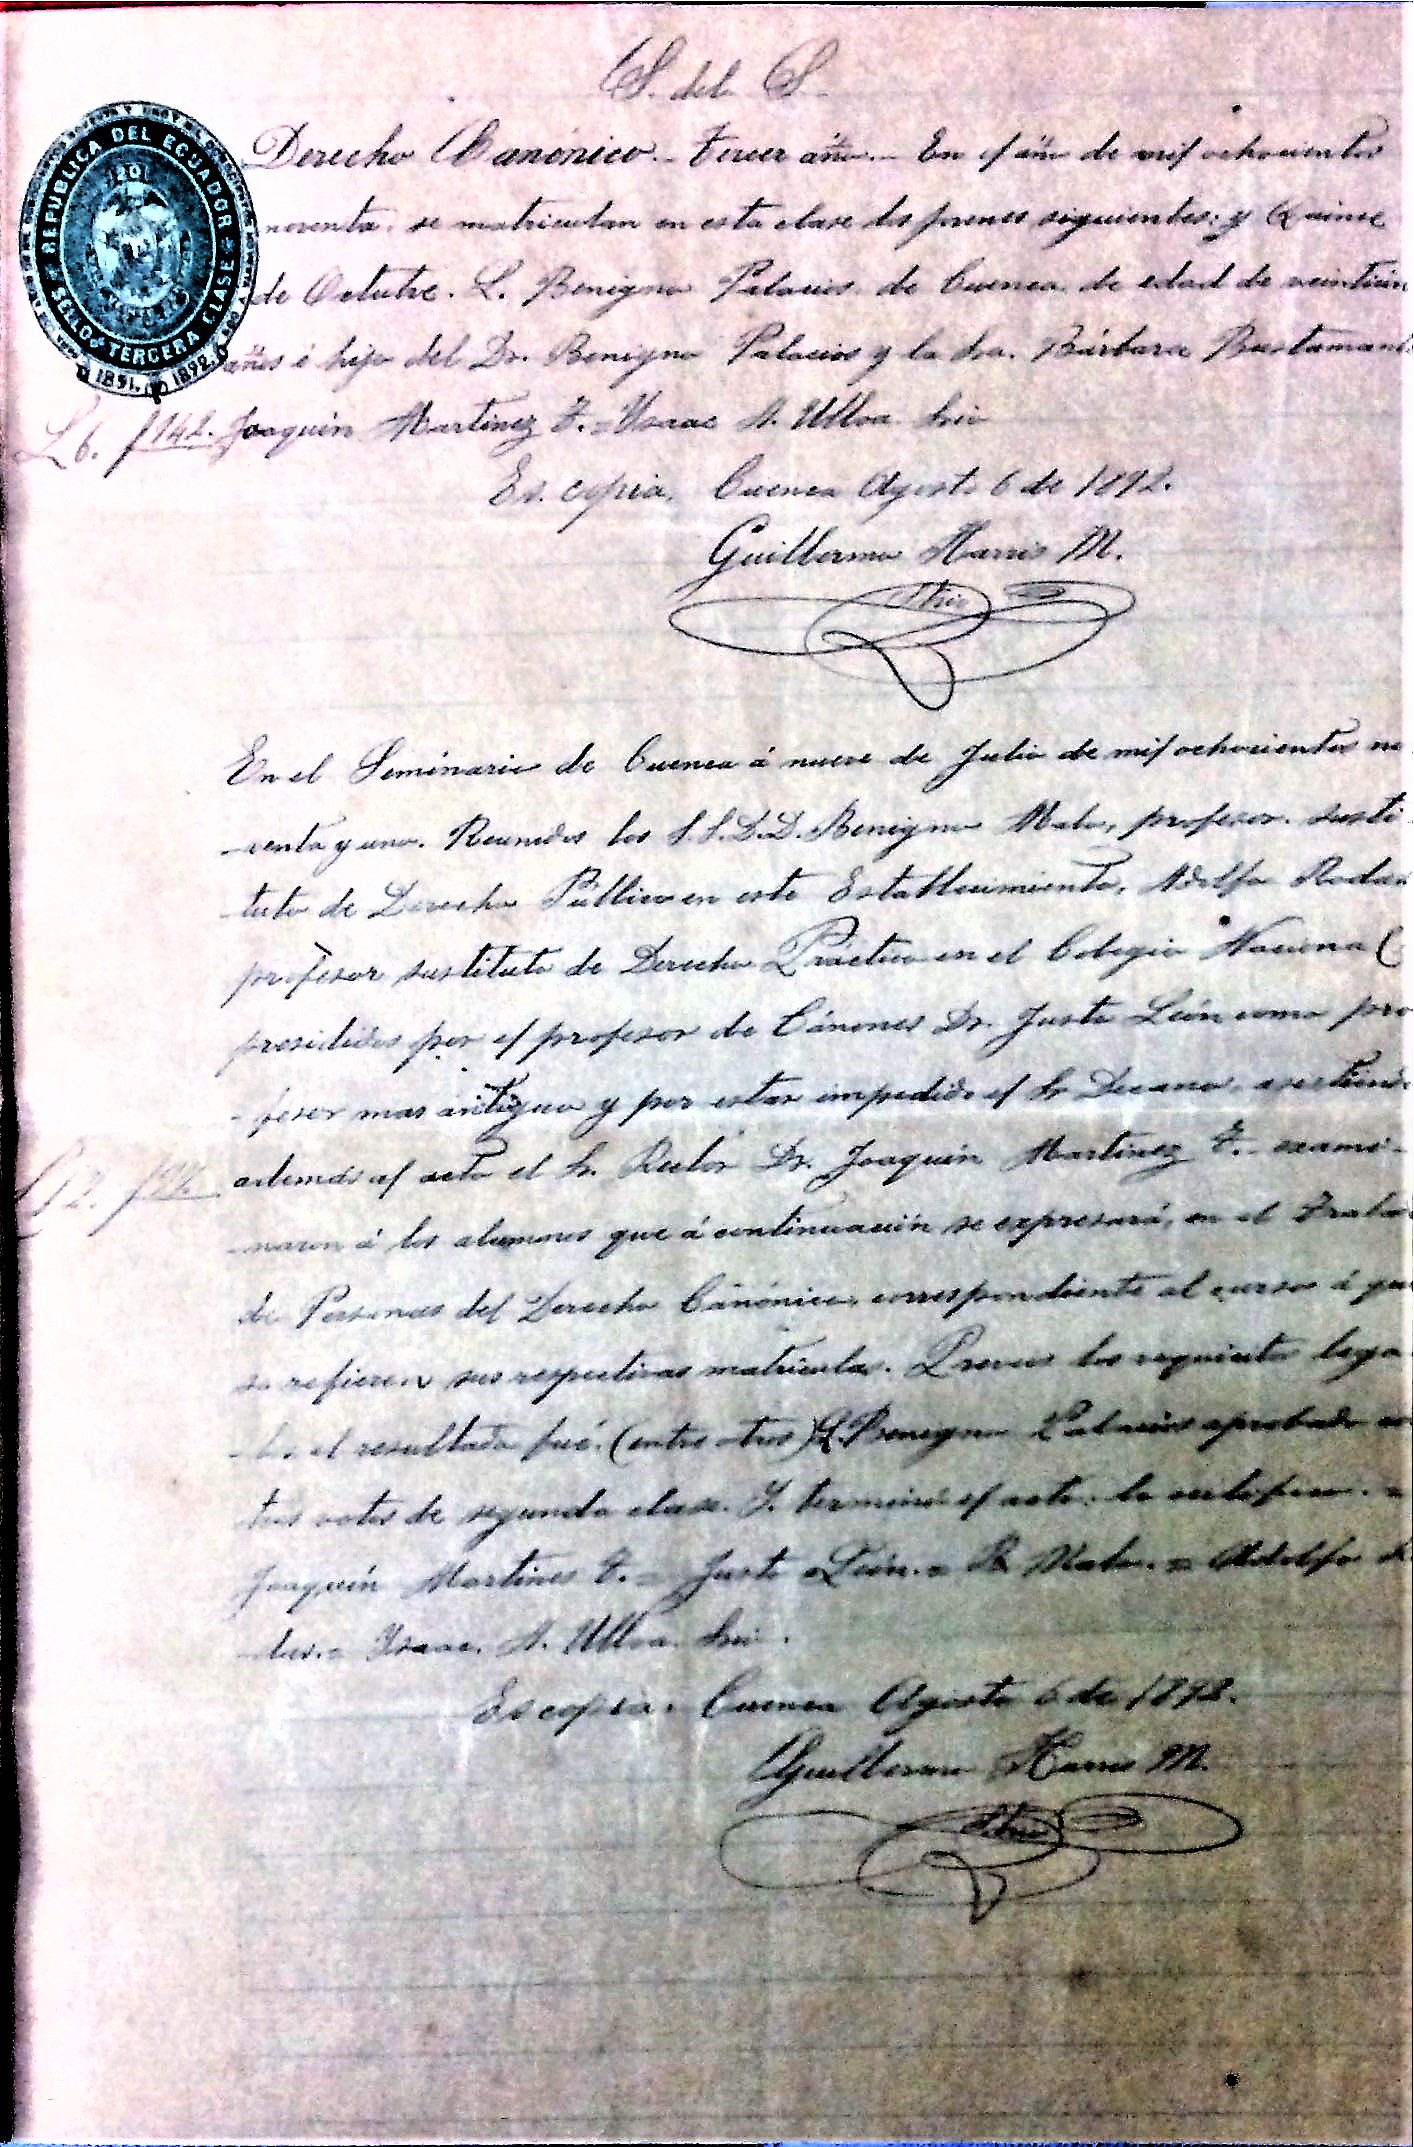 S. del S.
REPUBLICA DEL ECUADOR
20
SELLO TERCERA CLASE
1891. 1892.
Derecho Canónico.- tercer año.- En el año de mil ochocientos
noventa, se matriculan en esta clase los jóvenes siguientes: y Quince
de Octubre. L. Benigno Palacios, de Cuenca, de edad de veinticin
años é hijo del Dr. Benigno Palacios y la Sra. Bárbara Bustamant
L 6. f 142. Joaquín Martinez T. = Ysaac A. Ulloa Srio
Es copia, Cuenca Agosto 6 de 1892.
Guillermo Harris M.
Srio
En el Seminario de Cuenca á nueve de Julio de mil ochocientos no
-venta y uno. Reunidos los S.S.D.D. Benigno Malo, profesor susti
-tuto de Derecho Público en este Establecimiento, Adolfo Rodas
profesor sustituto de Derecho Práctico en el Colegio Nacional
presididos por el profesor de Cánones Dr. Justo León como pro
-fesor mas antiguo y por estar impedido el Sr Decano,
además al acto el Sr. Rector Dr. Joaquín Martinez T. - exami-
L 2.
-naron á los alumnos que á continuación se expresará, en el Tratado
de Personas del Derecho Canónico, correspondiente al curso á que
se refieren sus respectivas matrículas. Previos los requisitos lega
-les el resultado fué: (entre otros) L. Benigno Palacios aprobado con
tres votos de segunda clase. Y terminó el acto, lo certifico. =
Joaquín Martinez T. = Justo León. = B. Malo. = Adolfo R
-das. = Ysaac. A. Ulloa Srio.
Es copia. Cuenca Agosto 6 de 1892.
Guillermo Harris M.
Srio